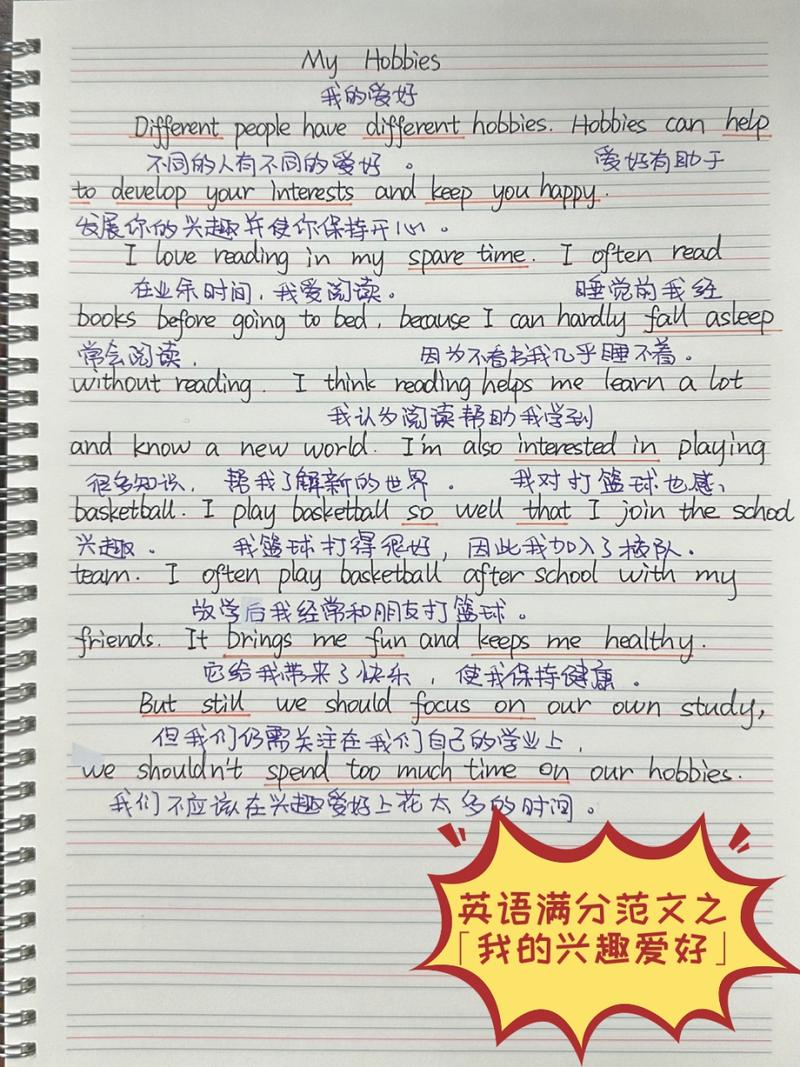 My Hobbies
我的爱好
Different people have different hobbies. Hobbies can help
不同的人有不同的爱好。 爱好有助于
to develop your interests and keep you happy.
发展你的兴趣并使你保持开心。
I love reading in my spare time. I often read
在业余时间,我爱阅读。 睡觉前我经
books before going to bed, because I can hardly fall asleep
常会阅读, 因为不看书我几乎睡不着。
without reading. I think reading helps me learn a lot
我认为阅读帮助我学到
and know a new world. I'm also interested in playing
很多知识, 帮我了解新的世界。 我对打篮球也感
basketball. I play basketball so well that I join the school
兴趣。 我篮球打得很好,因此我加入了校队。
team. I often play basketball after school with my
放学后我经常和朋友打篮球。
friends. It brings me fun and keeps me healthy.
它给我带来了快乐,使我保持健康。
But still we should focus on our own study,
但我们仍需关注在我们自己的学业上,
we shouldn't spend too much time on our hobbies.
我们不应该在兴趣爱好上花太多的时间。
英语满分范文之
「我的兴趣爱好」